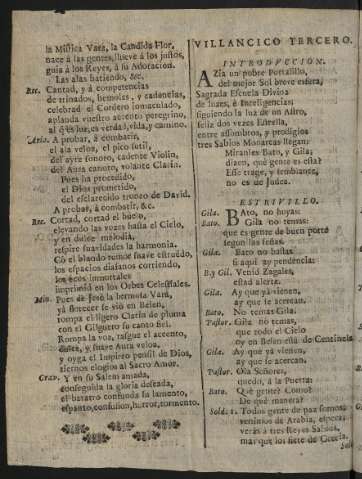 la Mistica Vara, la Candida Flor,
nace á las gentes, llueve á los justos,
guia á los Reyes, á su Adoracion.
Las alas batiendo, &c.
Rec. Cantad, y á competencias
de trinados, bemoles, y cadencias,
celebrad el Cordero inmaculado,
aplauda vuestro acento peregrino,
al q̃ es luz, es verdad, vida, y camino.
Aria. A probar, á combatir,
el ala veloz, el pico sutil,
del ayre sonoro, cadente Violin,
del Aura canoro, volante Clarin.
Pues ha procedido,
el Dios prometido,
del esclarecido tronco de David.
A probar, á combatir, &c.
Rec. Cortad, cortad el buelo,
elevando las voces hasta el Cielo,
y en dulce melodia,
respire suavidades la harmonia.
Có el blando rumor suave estruēdo,
los espacios diafanos corriendo,
los ecos inmortales
imprimid en los Orbes Celestiales.
Min. Pues de Jesé la hermosa Vara,
yá florecer se vió en Belen,
rompa el ligero Clarin de pluma
con el Gilguero su canto fiel.
Rompa la voz, rasgue el accento,
y suave Aura veloz,
y oyga el Impireo pensil de Dios,
tiernos elogios al Sacro Amor.
Grav. Y en su Salem amada,
conseguida la gloria deseada,
el baratro confunda su lamento,
espanto, confusion, horror, tormento.
VILLANCICO TERCERO.
INTRODUCCION.
AZia un pobre Portalillo,
del mejor Sol breve esfera,
Sagrada Escuela Divina
de luzes, è Inteligencias;
siguiendo la luz de un Astro,
feliz dos vezes Estrella,
entre assombros, y prodigios
tres Sabios Monarcas llegan:
Miranles Bato, y Gila;
dicen, què gente es esta?
Esse trage, y semblante,
no es de Judea.
ESTRIVILLO.
Gila. BAto, no huyas:
Bato. Gila no temas:
que es gente de buen porte
segun las señas.
Gila. Bato no bastas
si aqui ay pendencia:
B. y Gil. Venid Zagales,
estad alerta.
Gila. Ay que yá vienen,
ay que se acercan.
Bato. No temas Gila.
Pastor. Gila no temas,
que todo el Cielo
oy en Belen está de Centinela.
Gila. Ay que yá vienen,
ay que se acercan.
Pastor. Ola Señores,
quedo, á la Puerta:
Bato. Què gente? Como?
De què manera?
Sold. 1. Todos gente de paz somos:
venimos de Arabia, espera:
verás á tres Reyes Sabios,
mas que los siete de Grecia.